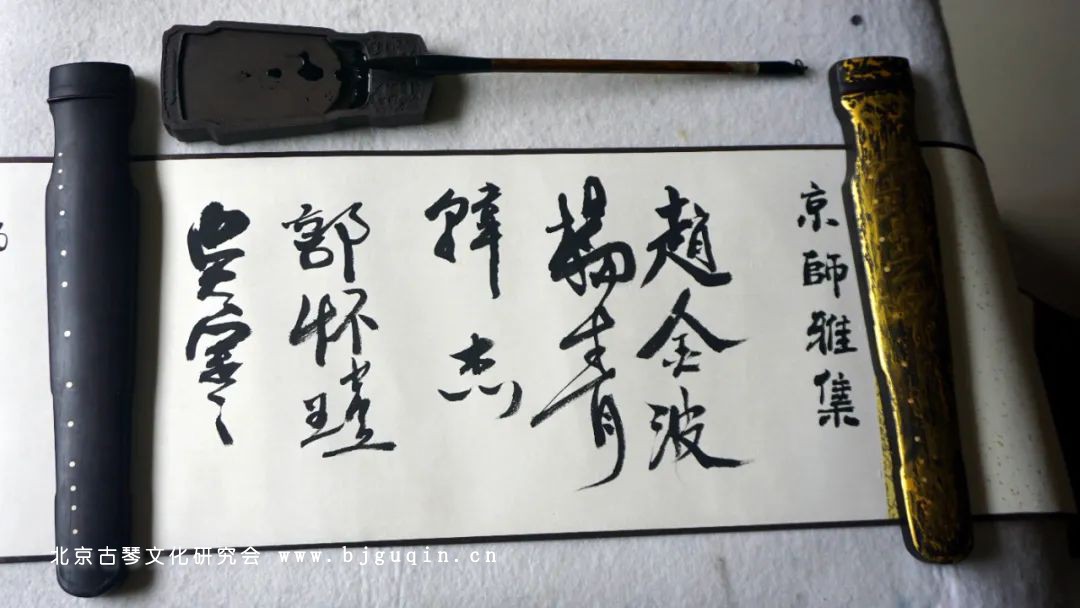 京師雅集
趙金波
楊青
韓杰
郭怀
吴
北京古琴文化研究会 www.bjguqin.cn